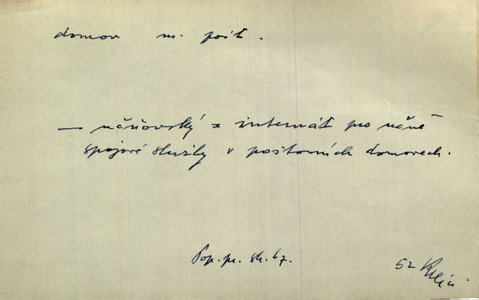 domov m. pošt.
— učňovský = internát pro učně
spojové služby v poštovních domovech.
Pop. pr. sl. 67.
52